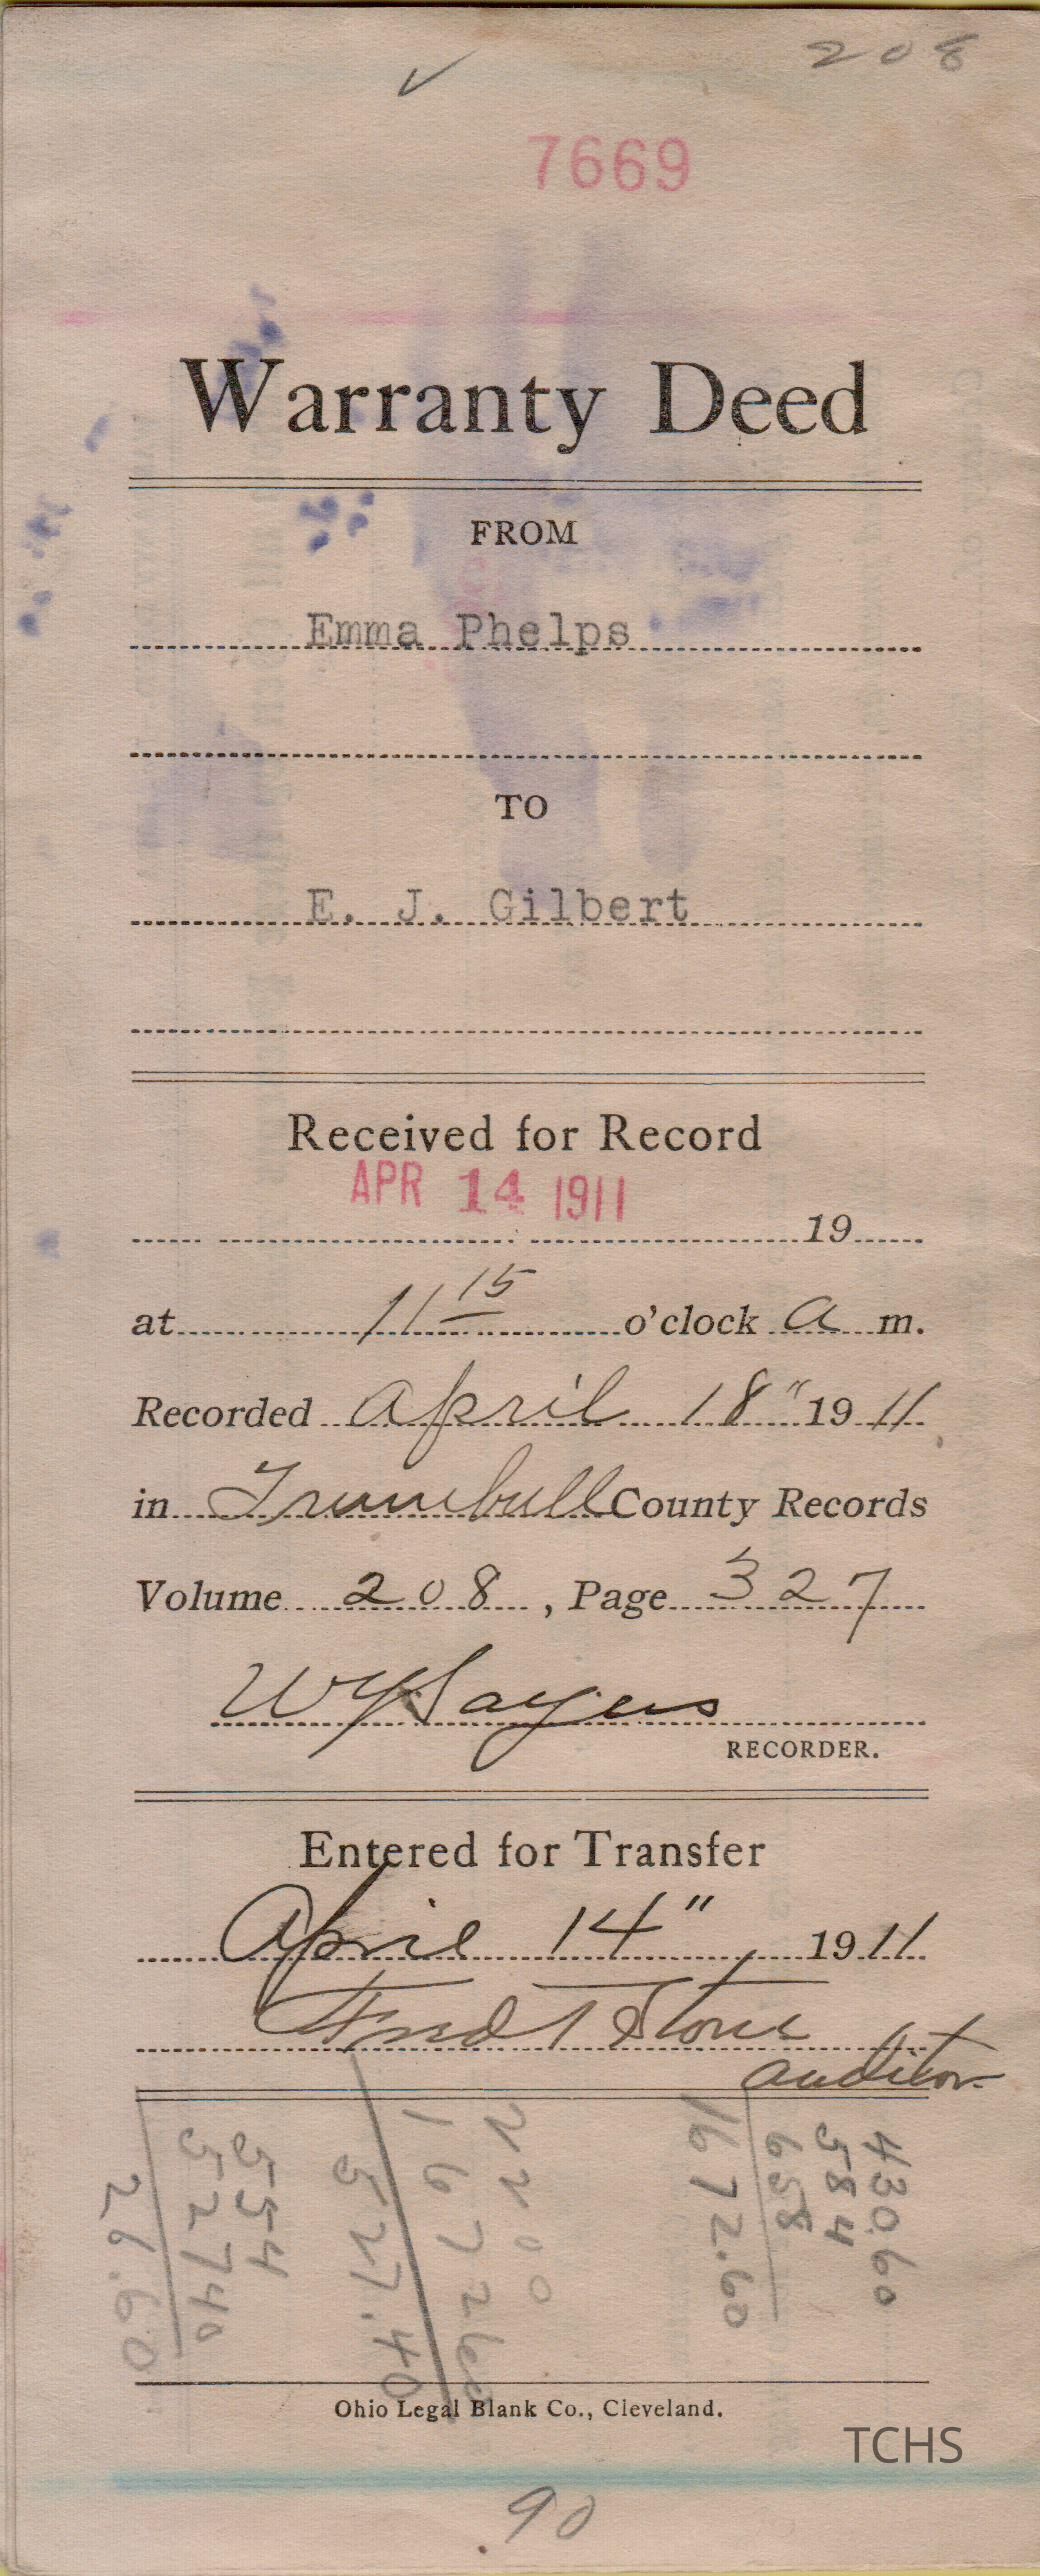 ✓ 208
7669
Warranty Deed
FROM
Emma Phelps
TO
E. J. Gilbert
Received for Record
APR 14 1911
19
at 11 15 o'clock a m.
Recorded April 18" 1911
in Trumbull County Records
Volume 208, Page 327
W Y Sayers
RECORDER.
Entered for Transfer
April 14", 1911
Fred T Stone
auditor
430.60
584
658
1672.60
2200
167260
527.40
554
52740
26.60
Ohio Legal Blank Co., Cleveland.
TCHS
90